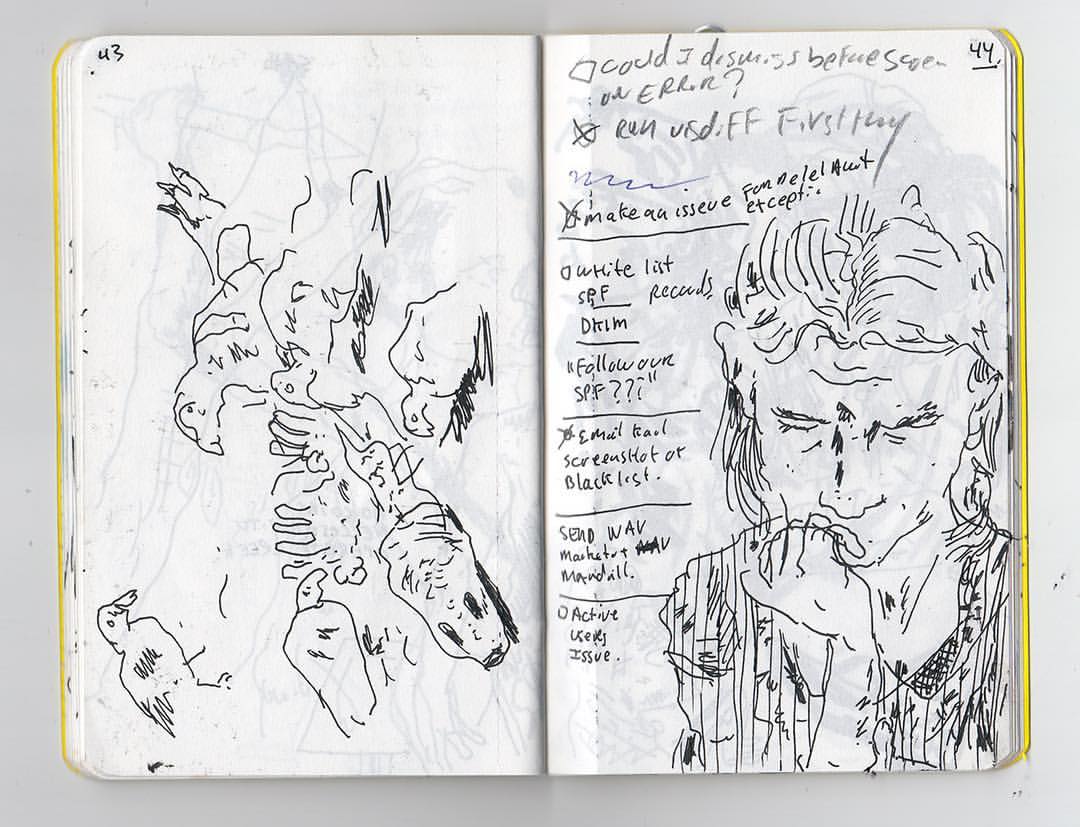 43
44.
could I dismiss before
on ERROR?
Run visdiff First
make an issue For
excepti
White list
SPF Records
DKIM
"Follow our
SPF???"
Email
screenshot of
Blacklist.
SEND WAV
Mandrill.
Active
users
Issue.